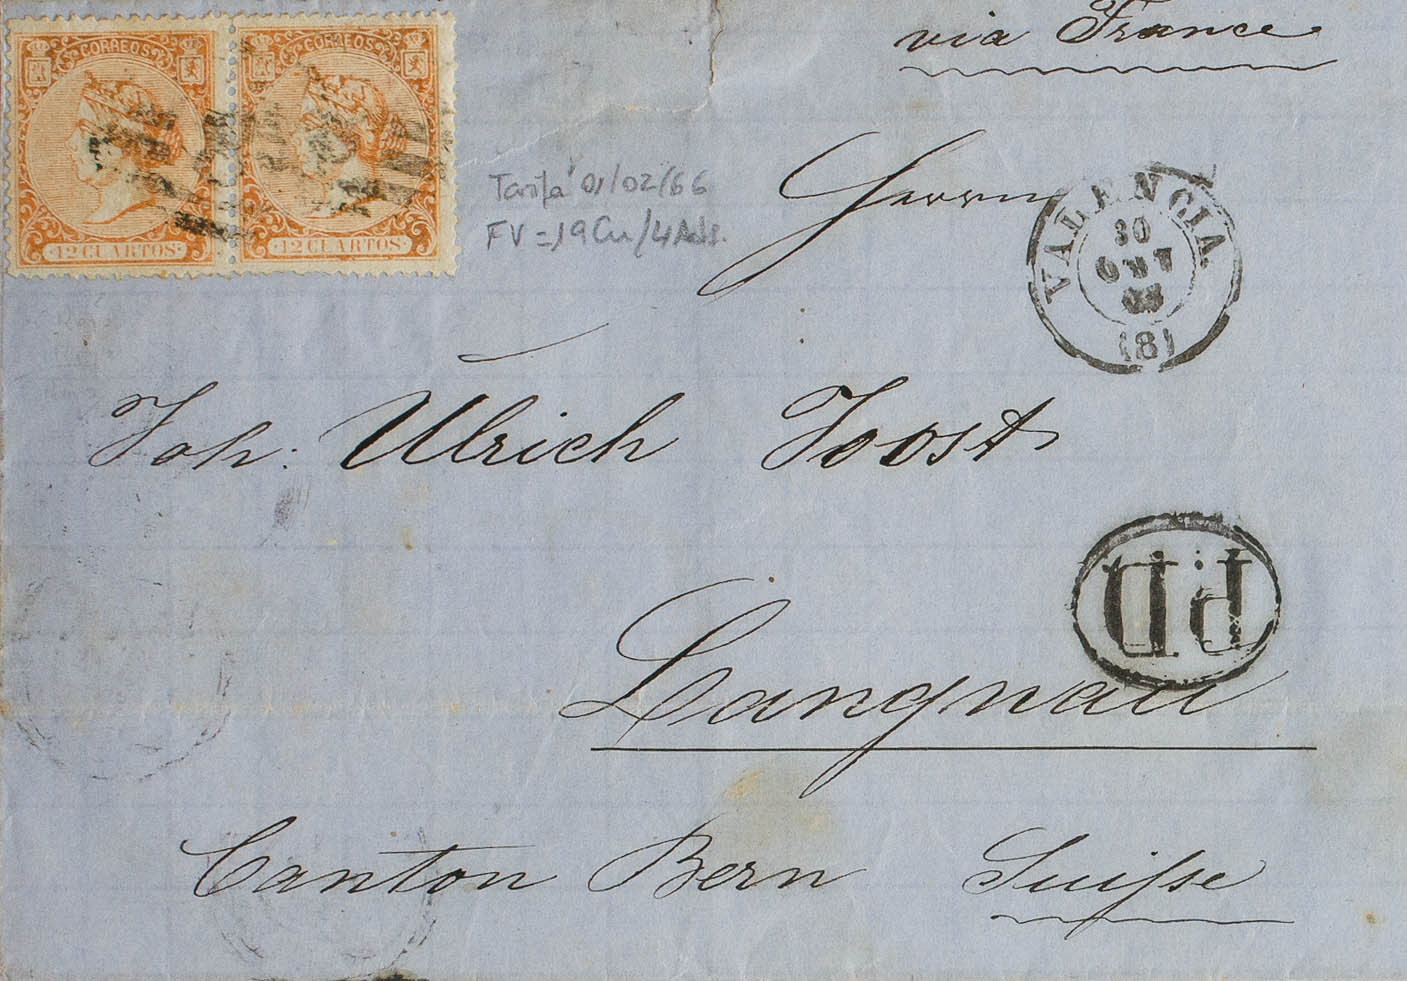 via France
CORREOS CORREOS
12 CUARTOS 12 CUARTOS
Tarifa 01/02/66
FV = 19Cu/4Ads.
Herrn
VALENCIA
30
(8)
Joh: Ulrich Joost
P.D
Langnau
Canton Bern Suisse